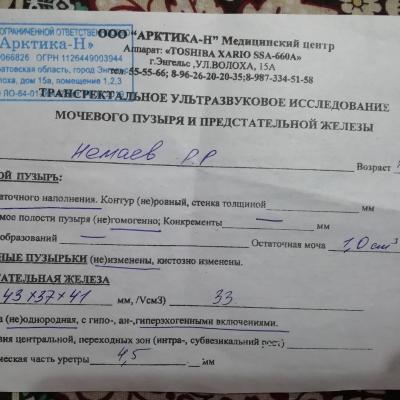 ОГРАНИЧЕННОЙ ОТВЕТСТВЕННО
Арктика-Н»
066826 ОГРН 1126449003944
ратовская область, город Энгельс
лоха, дом 15а, помещение 1,2,3
ЛО-64-01
ООО "АРКТИКА-Н" Медицинский центр
Аппарат: «TOSHIBA XARIO SSA-660A»
г.Энгельс ,УЛ.ВОЛОХА, 15А
тел. 55-55-66; 8-96-26-20-20-35;8-987-334-51-58
ТРАНСРЕКТАЛЬНОЕ УЛЬТРАЗВУКОВОЕ ИССЛЕДОВАНИЕ
МОЧЕВОГО ПУЗЫРЯ И ПРЕДСТАТЕЛЬНОЙ ЖЕЛЕЗЫ
Немаев Р.Р Возраст
ОЙ ПУЗЫРЬ:
аточного наполнения. Контур (не)ровный, стенка толщиной мм
мое полости пузыря (не)гомогенно; Конкременты мм
образований Остаточная моча 1,0 cm³
НЫЕ ПУЗЫРЬКИ (не)изменены, кистозно изменены.
ТАТЕЛЬНАЯ ЖЕЛЕЗА
43×37×41 мм, /Vсм3) 33
а (не)однородная, с гипо-, ан-,гиперэхогенными включениями.
ствия центральной, переходных зон (интра-, субвезикальный рост)
ческая часть уретры 4,5 мм